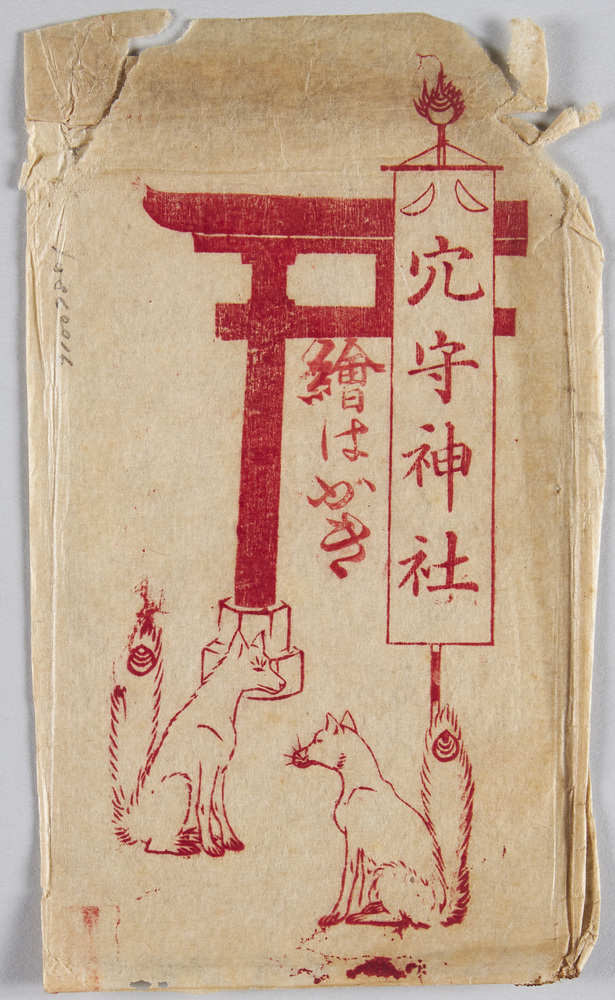 穴守神社
繪はがき